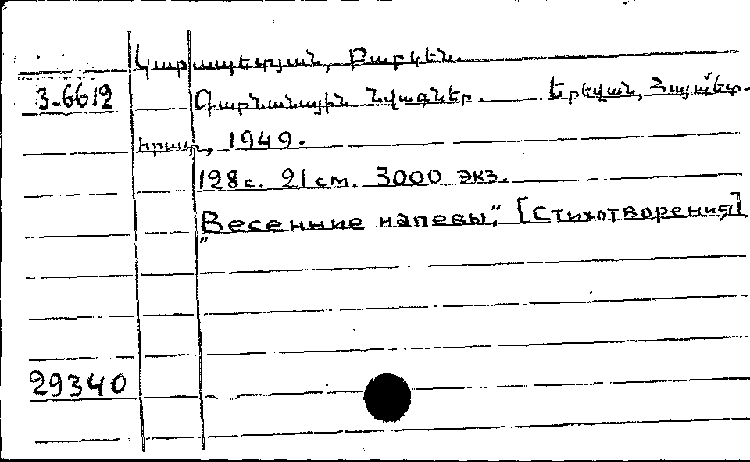 Կարապետյան, Բարկեն.
3-6612 Գարնանային նվագներ. Երևան, Հայպետ-
հրատ, 1949.
128 с. 21 см. 3000 экз.
„Весенние напевы”, [Стихотворения]
29340